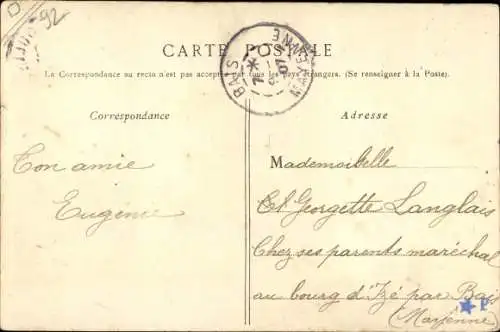 92
CARTE POSTALE
La Correspondance au recto n'est pas acceptée par tous les pays étrangers. (Se renseigner à la Poste).
BAIS
MAYENNE
Correspondance
Ton amie
Eugénie
Adresse
Mademoiselle
Georgette Langlais
Chez ses parents maréchal
au bourg d'Izé par Bais
Mayenne
P